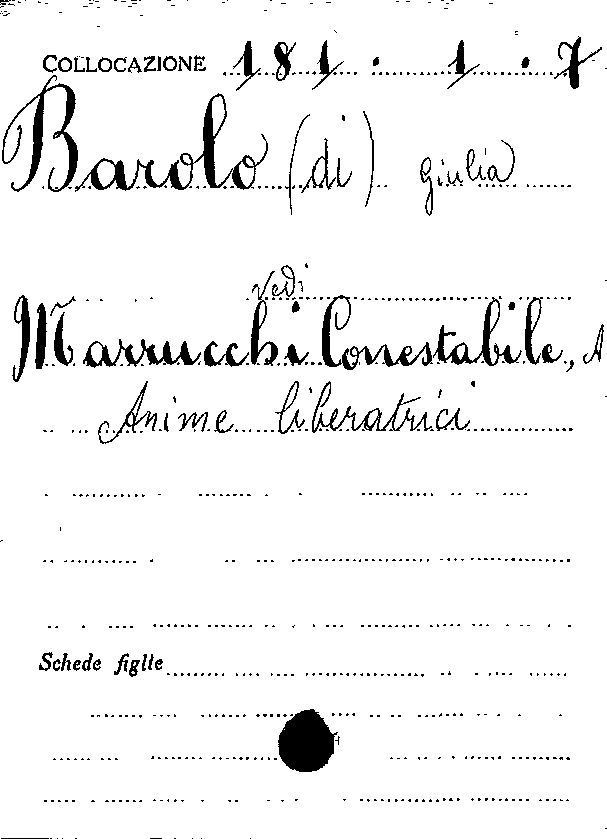 COLLOCAZIONE 181.1.7
Barolo (di) Giulia
vedi
Marrucchi Conestabile, A
Anime liberatrici
Schede figlie